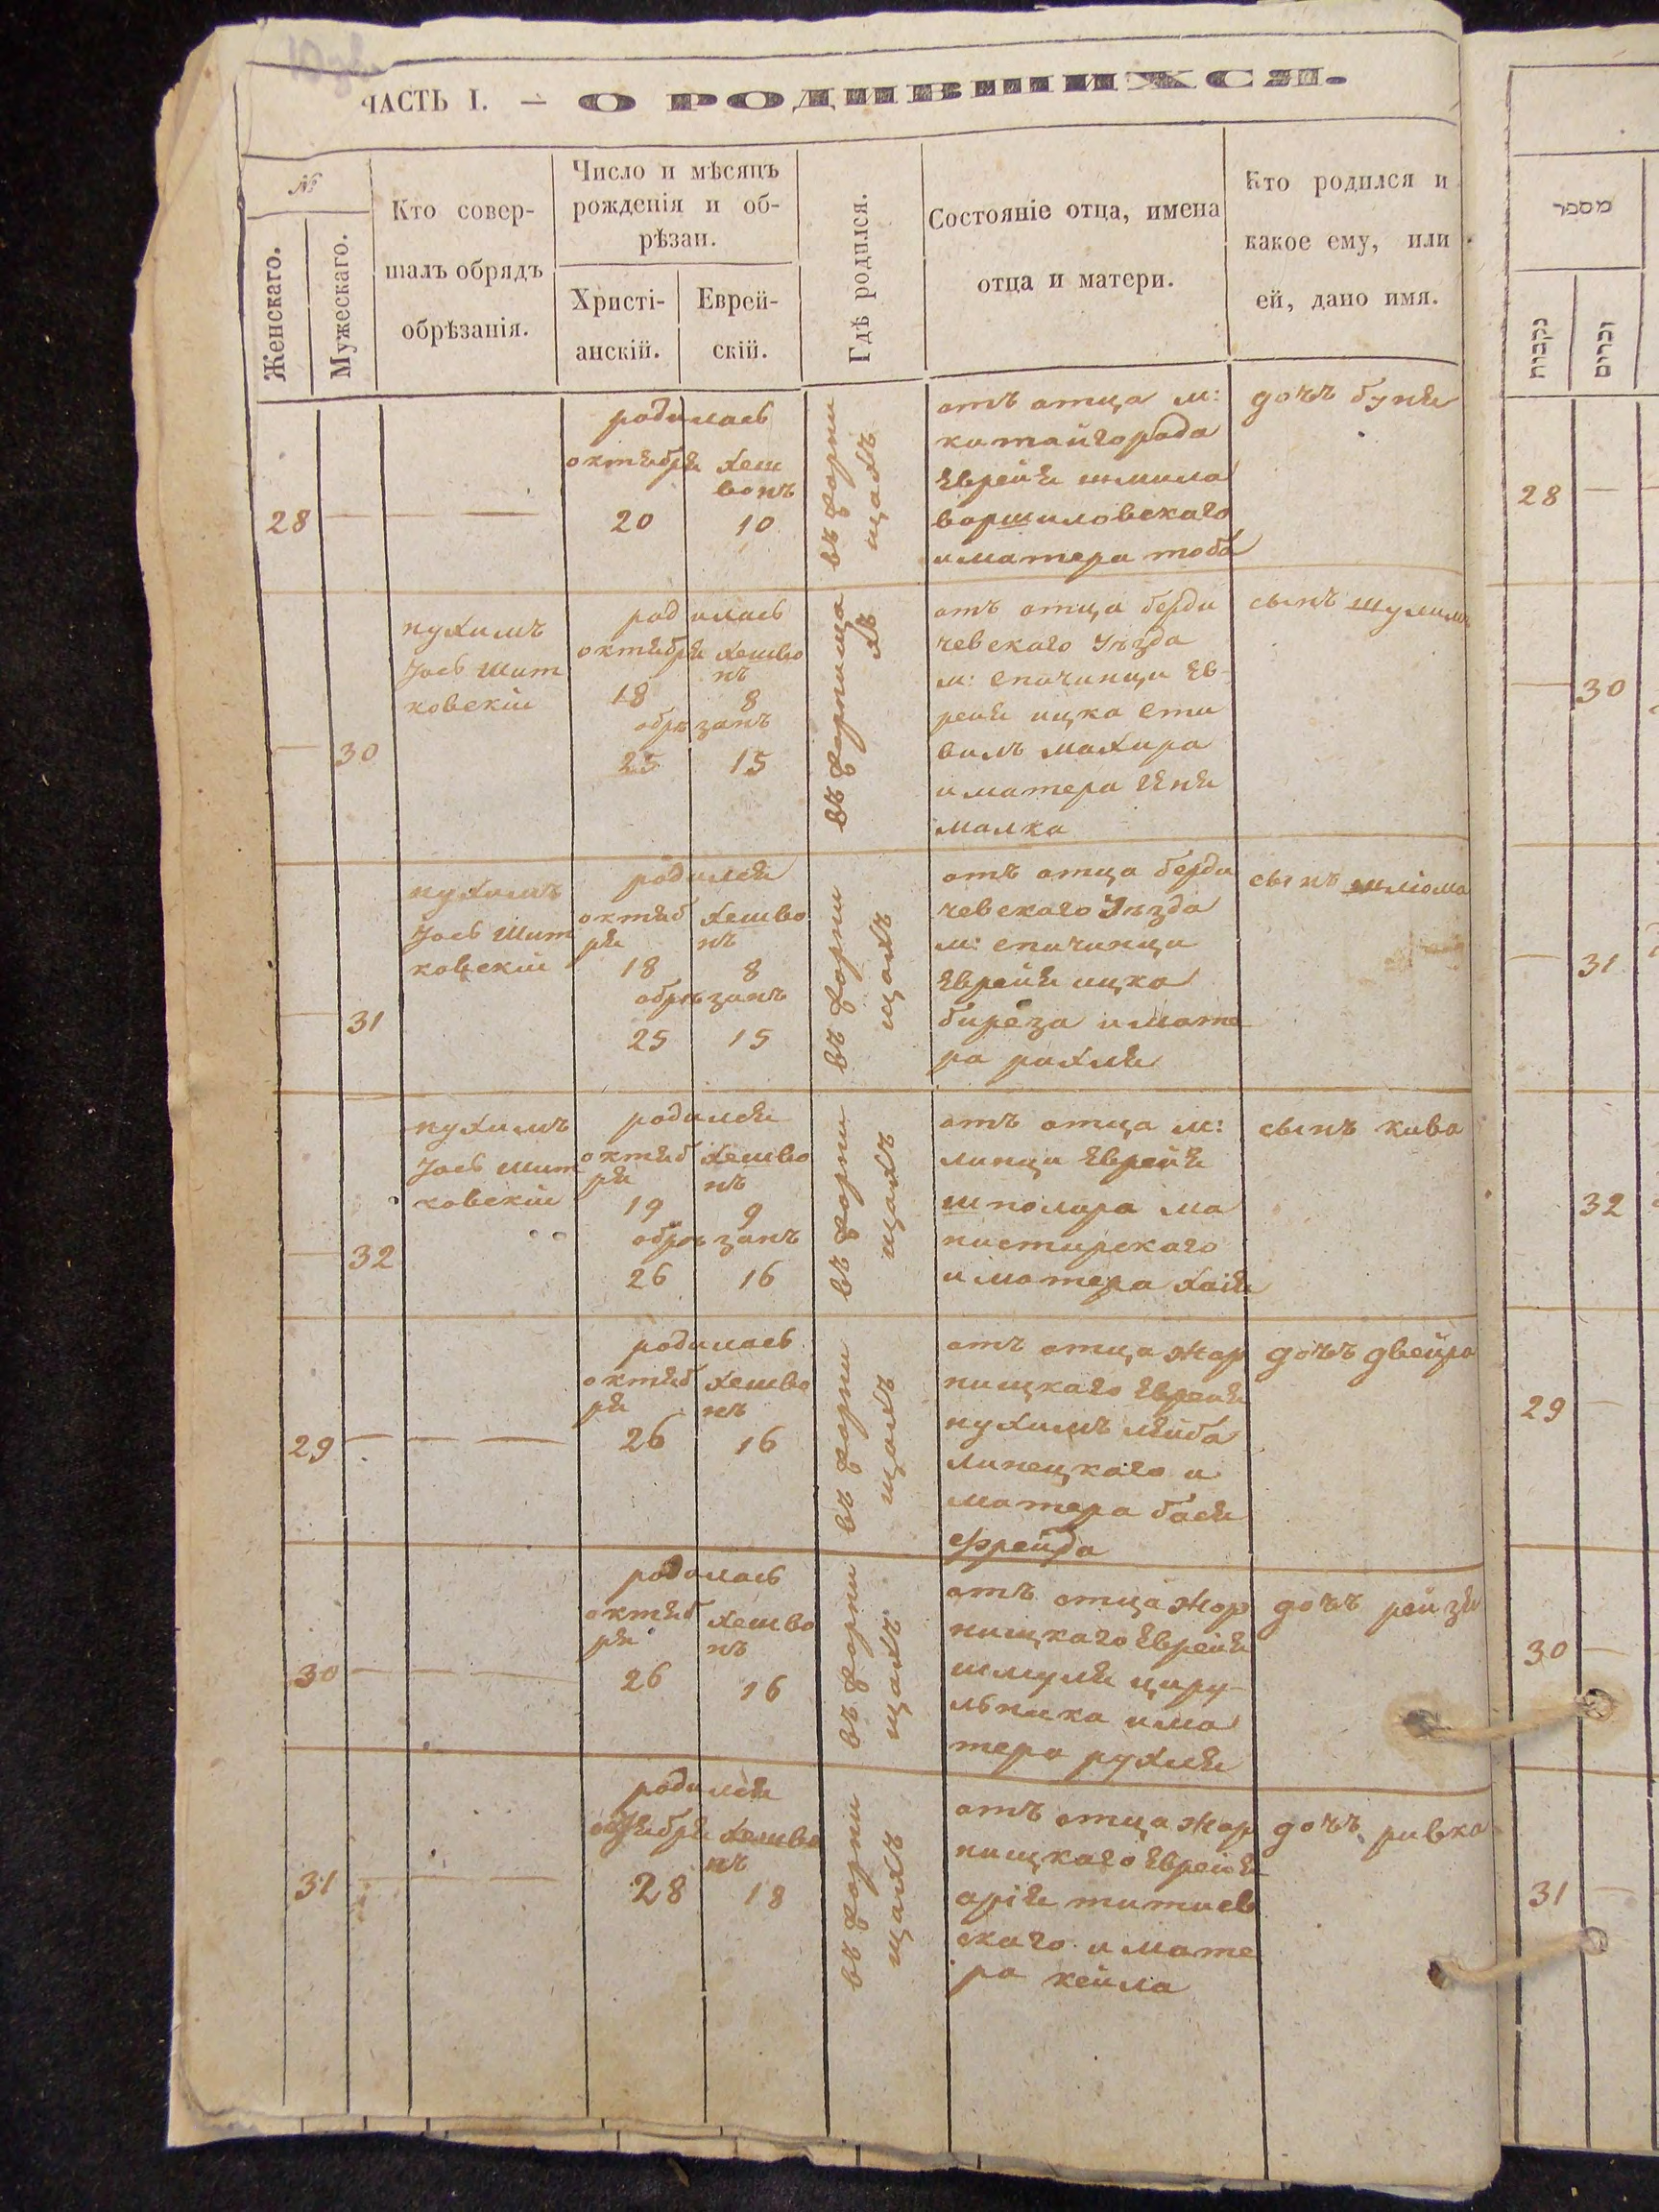 ЧАСТЬ I. — О РОДИВШИХСЯ.
№
Женскаго.
Мужескаго.
Кто совер-
шалъ обрядъ
обрѣзанія.
Число и мѣсяцъ
рожденія и об-
рѣзан.
Христі-
анскій.
Еврей-
скій.
Гдѣ родился.
Состояніе отца, имена
отца и матери.
Кто родился и
какое ему, или
ей, дано имя.
28 — —
родилась
октября хеш
вонъ
20 10
въ жорни
щахъ
отъ отца м:
китайгорода
Еврея шмила
воршиловскаго
и матера тоба
дочъ буня
— 30
нухимъ
Іось шит
ковскій
родилась
октября хешво
нъ
18 8
обрезанъ
25 15
въ жорнища
хъ
отъ отца берди
чевскаго уѣзда
м: спичинци Ев-
рея ицка
махира
и матера
малка
сынъ
— 31
нухимъ
Іось шит
ковскій
родился
октяб хешво
ря нъ
18 8
обрезанъ
25 15
въ жорни
щахъ
отъ отца берди
чевскаго уѣзда
м: спичинци
Еврея ицка
биреза и мате
ра рихля
сынъ шліома
— 32
нухимъ
Іось шит
ковскій
родился
октяб хешво
ря нъ
19 9
обрезанъ
26 16
въ жорни
щахъ
отъ отца м:
линци Еврея
шполира мо
настирскаго
и матера хаія
сынъ кива
29 — — —
родилась
октяб хешво
ря нъ
26 16
въ жорни
щахъ
отъ отца жор
нищкаго Еврея
нухимъ лейба
липецкаго и
матера бася
фрейда
дочъ двейра
30 — — —
родилась
октяб хешво
ря нъ
26 16
въ жорни
щахъ
отъ отца жор
нищкаго Еврея
шмуля циру-
льника и ма
тера рухля
дочъ рейзя
31 — — —
родилея
октября хешво
нъ
28 18
въ жорни
щахъ
отъ отца жор
нищкаго Еврея
арія титиев
скаго и мате
ра кейла
дочъ ривка
מספר
נקבות
זכרים
28 —
— 30
— 31
32
29 —
30 —
31 —